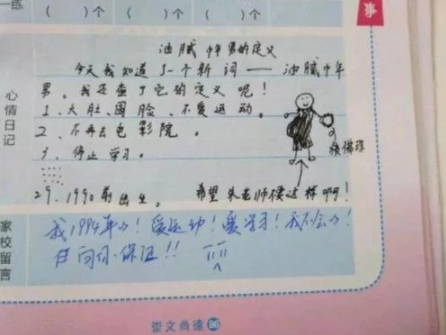 ( )个 ( )个 ( )个
油腻中年男的定义
今天我知道了一个新词——油腻中年
男。我还查了它的定义呢!
1、大肚、圆脸、不爱运动。
2、不再去电影院。
3、停止学习。
29、1990前出生。
希望朱老师不要这样啊!
心情日记
我1994年的!爱运动!爱学习!我不会的!
向你保证!!
家校留言
崇文尚德